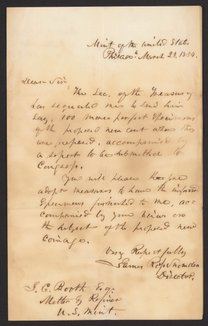 Mint of the United States
Philada March 22, 1854
Dear Sir
The Sec. of the Treasury
has requested me to send him
say, 100 more perfect specimens
of the proposed new cent above than
was prepared, accompanied by
a report to be submitted to
Congress.
You will please therefore
adopt measures to have the
specimens furnished to me, acc
companied by your views on
the subject of the proposed new
coinage.
Very Respectfully
James Ross Snowden
Director.
J. C. Booth Esq.
Melter & Refiner
U. S. Mint.